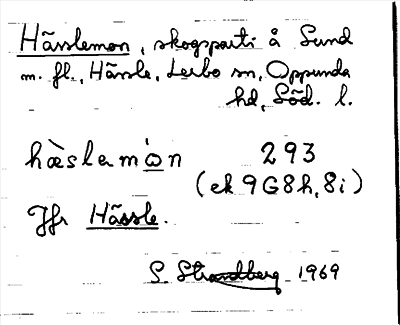 Hässlemon, skogsparti å Sund
m. fl., Hässle, Lerbo sn, Oppunda
hd, Söd. l.
hæ̀slemón 293
(ek 9G8h, 8i)
Jfr Hässle.
S. Strandberg 1969